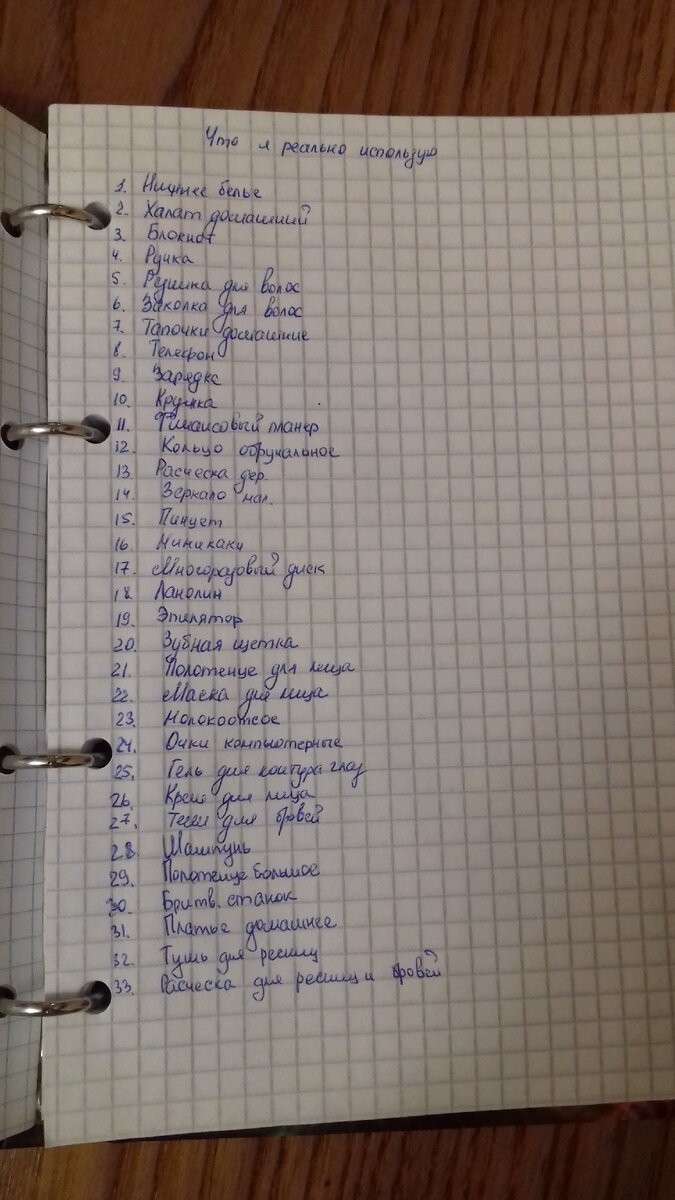 Что я реально использую
1. Нижнее белье
2. Халат домашний
3. Блокнот
4. Ручка
5. Резинка для волос
6. Заколка для волос
7. Тапочки домашние
8. Телефон
9. Зарядка
10. Кружка
11. Финансовый планер
12. Кольцо обручальное
13. Расческа дер.
14. Зеркало мал.
15. Пинцет
16.
17. Многоразовый диск
18. Ланолин
19. Эпилятор
20. Зубная щетка
21. Полотенце для лица
22. Маска для лица
23. Молокоотсос
24. Очки компьютерные
25. Гель для контура глаз
26. Крем для лица
27. Тени для бровей
28. Шампунь
29. Полотенце большое
30. Бритв. станок
31. Платье домашнее
32. Тушь для ресниц
33. Расческа для ресниц и бровей